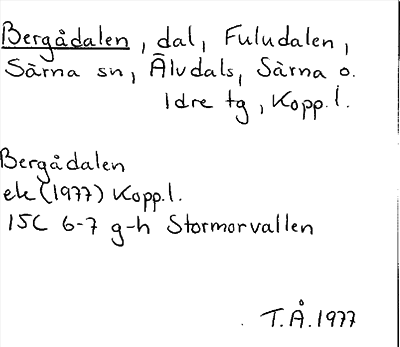 Bergådalen, dal, Fuludalen,
Särna sn, Älvdals, Särna o.
Idre tg, Kopp.l.
Bergådalen
ek (1977) Kopp.l.
15C 6-7 g-h Stormorvallen
T.Å. 1977